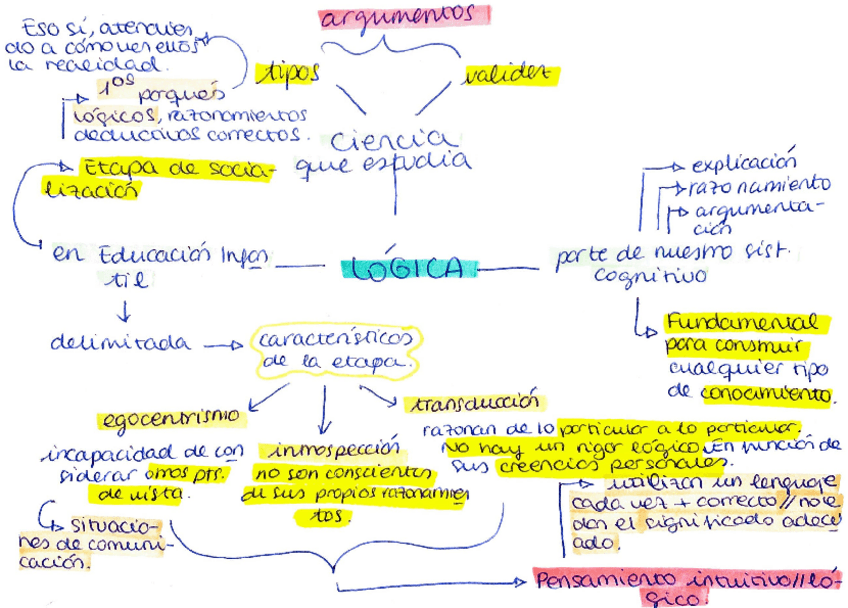 argumentos
tipos
validez
ciencia
que estudia
LÓGICA
Eso sí, atendien
do a cómo ven ellos
la realidad.
1os porqués
lógicos, razonamientos
deductivos correctos.
Etapa de socia-
lización
en Educación Infan
til
delimitada
características
de la etapa.
egocentrismo
incapacidad de con
siderar otros pts.
de vista.
situacio-
nes de comuni-
cación.
inmospección
no son conscientes
de sus propios razonamien
tos.
transducción
razonan de lo particular a lo particular.
No hay un rigor lógico. En función de
sus creencias personales.
utilizan un lenguaje
cada vez + correcto // no le
dan el significado adecu
ado.
Pensamiento intuitivo // ló-
gico.
parte de nuestro sist.
cognitivo
explicación
razonamiento
argumenta-
ción
Fundamental
para construir
cualquier tipo
de conocimiento.